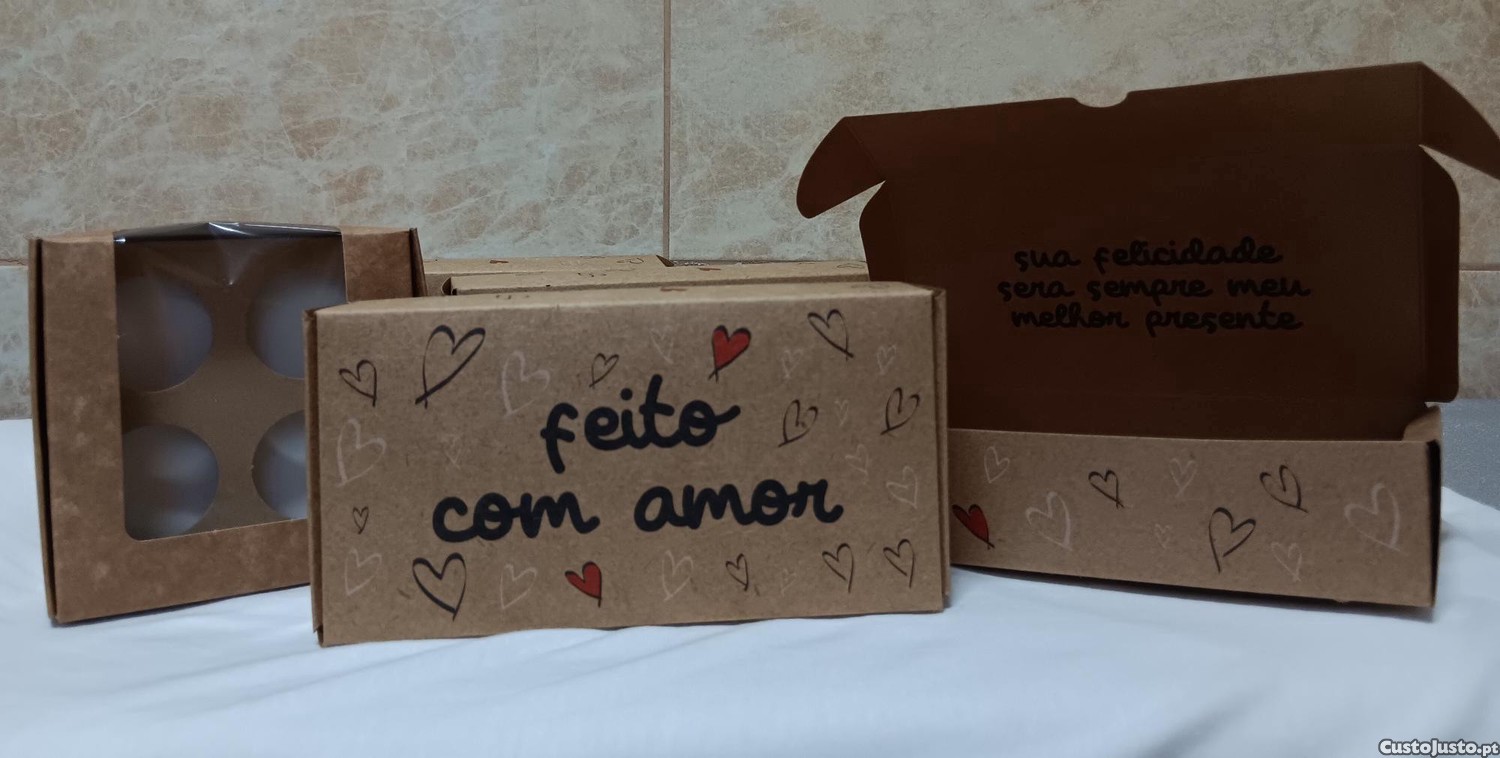 feito
com amor
sua felicidade
sera sempre meu
melhor presente
CustoJusto.pt